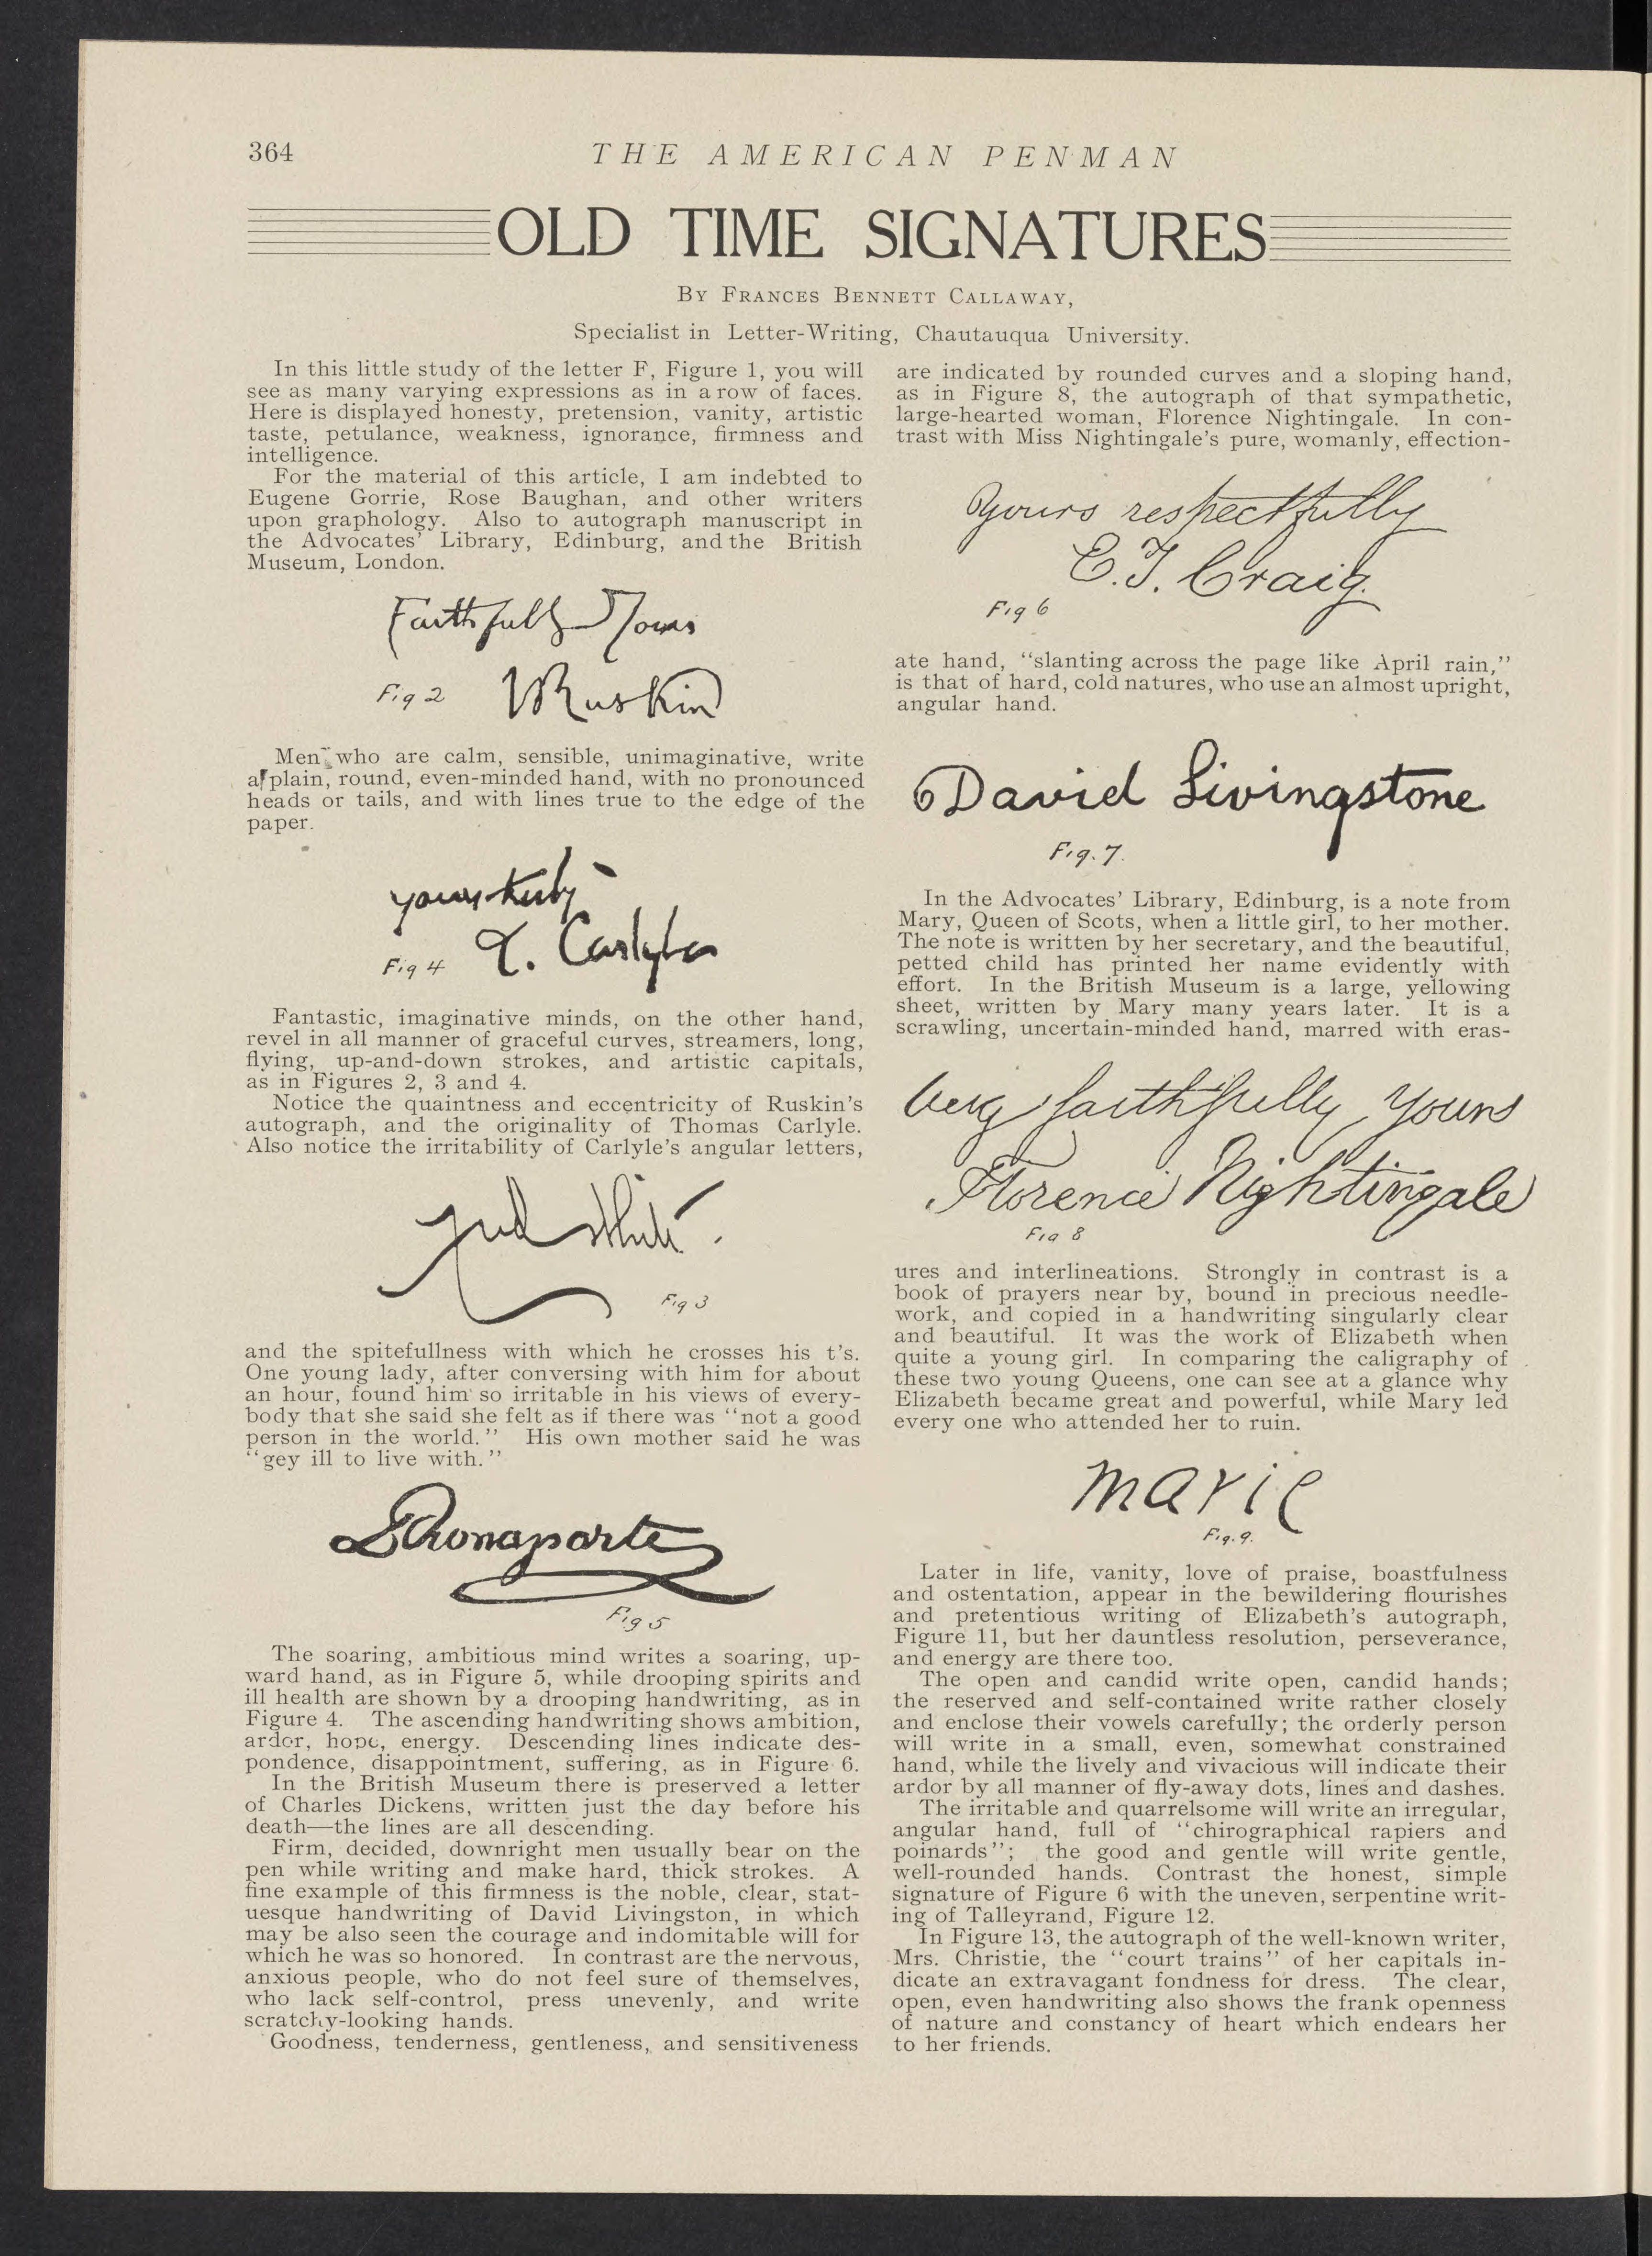 364
THE AMERICAN PENMAN
OLD TIME SIGNATURES
By Frances Bennett Callaway,
Specialist in Letter-Writing, Chautauqua University.
In this little study of the letter F, Figure 1, you will
see as many varying expressions as in a row of faces.
Here is displayed honesty, pretension, vanity, artistic
taste, petulance, weakness, ignorance, firmness and
intelligence.
For the material of this article, I am indebted to
Eugene Gorrie, Rose Baughan, and other writers
upon graphology. Also to autograph manuscript in
the Advocates' Library, Edinburg, and the British
Museum, London.
Faithfully Yours
Ruskin
Fig 2
Men who are calm, sensible, unimaginative, write
a plain, round, even-minded hand, with no pronounced
heads or tails, and with lines true to the edge of the
paper.
yours truly
T. Carlyle
Fig 4
Fantastic, imaginative minds, on the other hand,
revel in all manner of graceful curves, streamers, long,
flying, up-and-down strokes, and artistic capitals,
as in Figures 2, 3 and 4.
Notice the quaintness and eccentricity of Ruskin's
autograph, and the originality of Thomas Carlyle.
Also notice the irritability of Carlyle's angular letters,
Fig 3
and the spitefullness with which he crosses his t's.
One young lady, after conversing with him for about
an hour, found him so irritable in his views of every-
body that she said she felt as if there was "not a good
person in the world." His own mother said he was
"gey ill to live with."
Buonaparte
Fig 5
The soaring, ambitious mind writes a soaring, up-
ward hand, as in Figure 5, while drooping spirits and
ill health are shown by a drooping handwriting, as in
Figure 4. The ascending handwriting shows ambition,
ardor, hope, energy. Descending lines indicate des-
pondence, disappointment, suffering, as in Figure 6.
In the British Museum there is preserved a letter
of Charles Dickens, written just the day before his
death—the lines are all descending.
Firm, decided, downright men usually bear on the
pen while writing and make hard, thick strokes. A
fine example of this firmness is the noble, clear, stat-
uesque handwriting of David Livingston, in which
may be also seen the courage and indomitable will for
which he was so honored. In contrast are the nervous,
anxious people, who do not feel sure of themselves,
who lack self-control, press unevenly, and write
scratchy-looking hands.
Goodness, tenderness, gentleness, and sensitiveness
are indicated by rounded curves and a sloping hand,
as in Figure 8, the autograph of that sympathetic,
large-hearted woman, Florence Nightingale. In con-
trast with Miss Nightingale's pure, womanly, effection-
yours respectfully
E.T. Craig.
Fig 6
ate hand, "slanting across the page like April rain,"
is that of hard, cold natures, who use an almost upright,
angular hand.
David Livingstone
Fig. 7.
In the Advocates' Library, Edinburg, is a note from
Mary, Queen of Scots, when a little girl, to her mother.
The note is written by her secretary, and the beautiful,
petted child has printed her name evidently with
effort. In the British Museum is a large, yellowing
sheet, written by Mary many years later. It is a
scrawling, uncertain-minded hand, marred with eras-
very faithfully yours
Florence Nightingale
Fig 8
ures and interlineations. Strongly in contrast is a
book of prayers near by, bound in precious needle-
work, and copied in a handwriting singularly clear
and beautiful. It was the work of Elizabeth when
quite a young girl. In comparing the caligraphy of
these two young Queens, one can see at a glance why
Elizabeth became great and powerful, while Mary led
every one who attended her to ruin.
marie
Fig. 9.
Later in life, vanity, love of praise, boastfulness
and ostentation, appear in the bewildering flourishes
and pretentious writing of Elizabeth's autograph,
Figure 11, but her dauntless resolution, perseverance,
and energy are there too.
The open and candid write open, candid hands;
the reserved and self-contained write rather closely
and enclose their vowels carefully; the orderly person
will write in a small, even, somewhat constrained
hand, while the lively and vivacious will indicate their
ardor by all manner of fly-away dots, lines and dashes.
The irritable and quarrelsome will write an irregular,
angular hand, full of "chirographical rapiers and
poinards"; the good and gentle will write gentle,
well-rounded hands. Contrast the honest, simple
signature of Figure 6 with the uneven, serpentine writ-
ing of Talleyrand, Figure 12.
In Figure 13, the autograph of the well-known writer,
Mrs. Christie, the "court trains" of her capitals in-
dicate an extravagant fondness for dress. The clear,
open, even handwriting also shows the frank openness
of nature and constancy of heart which endears her
to her friends.